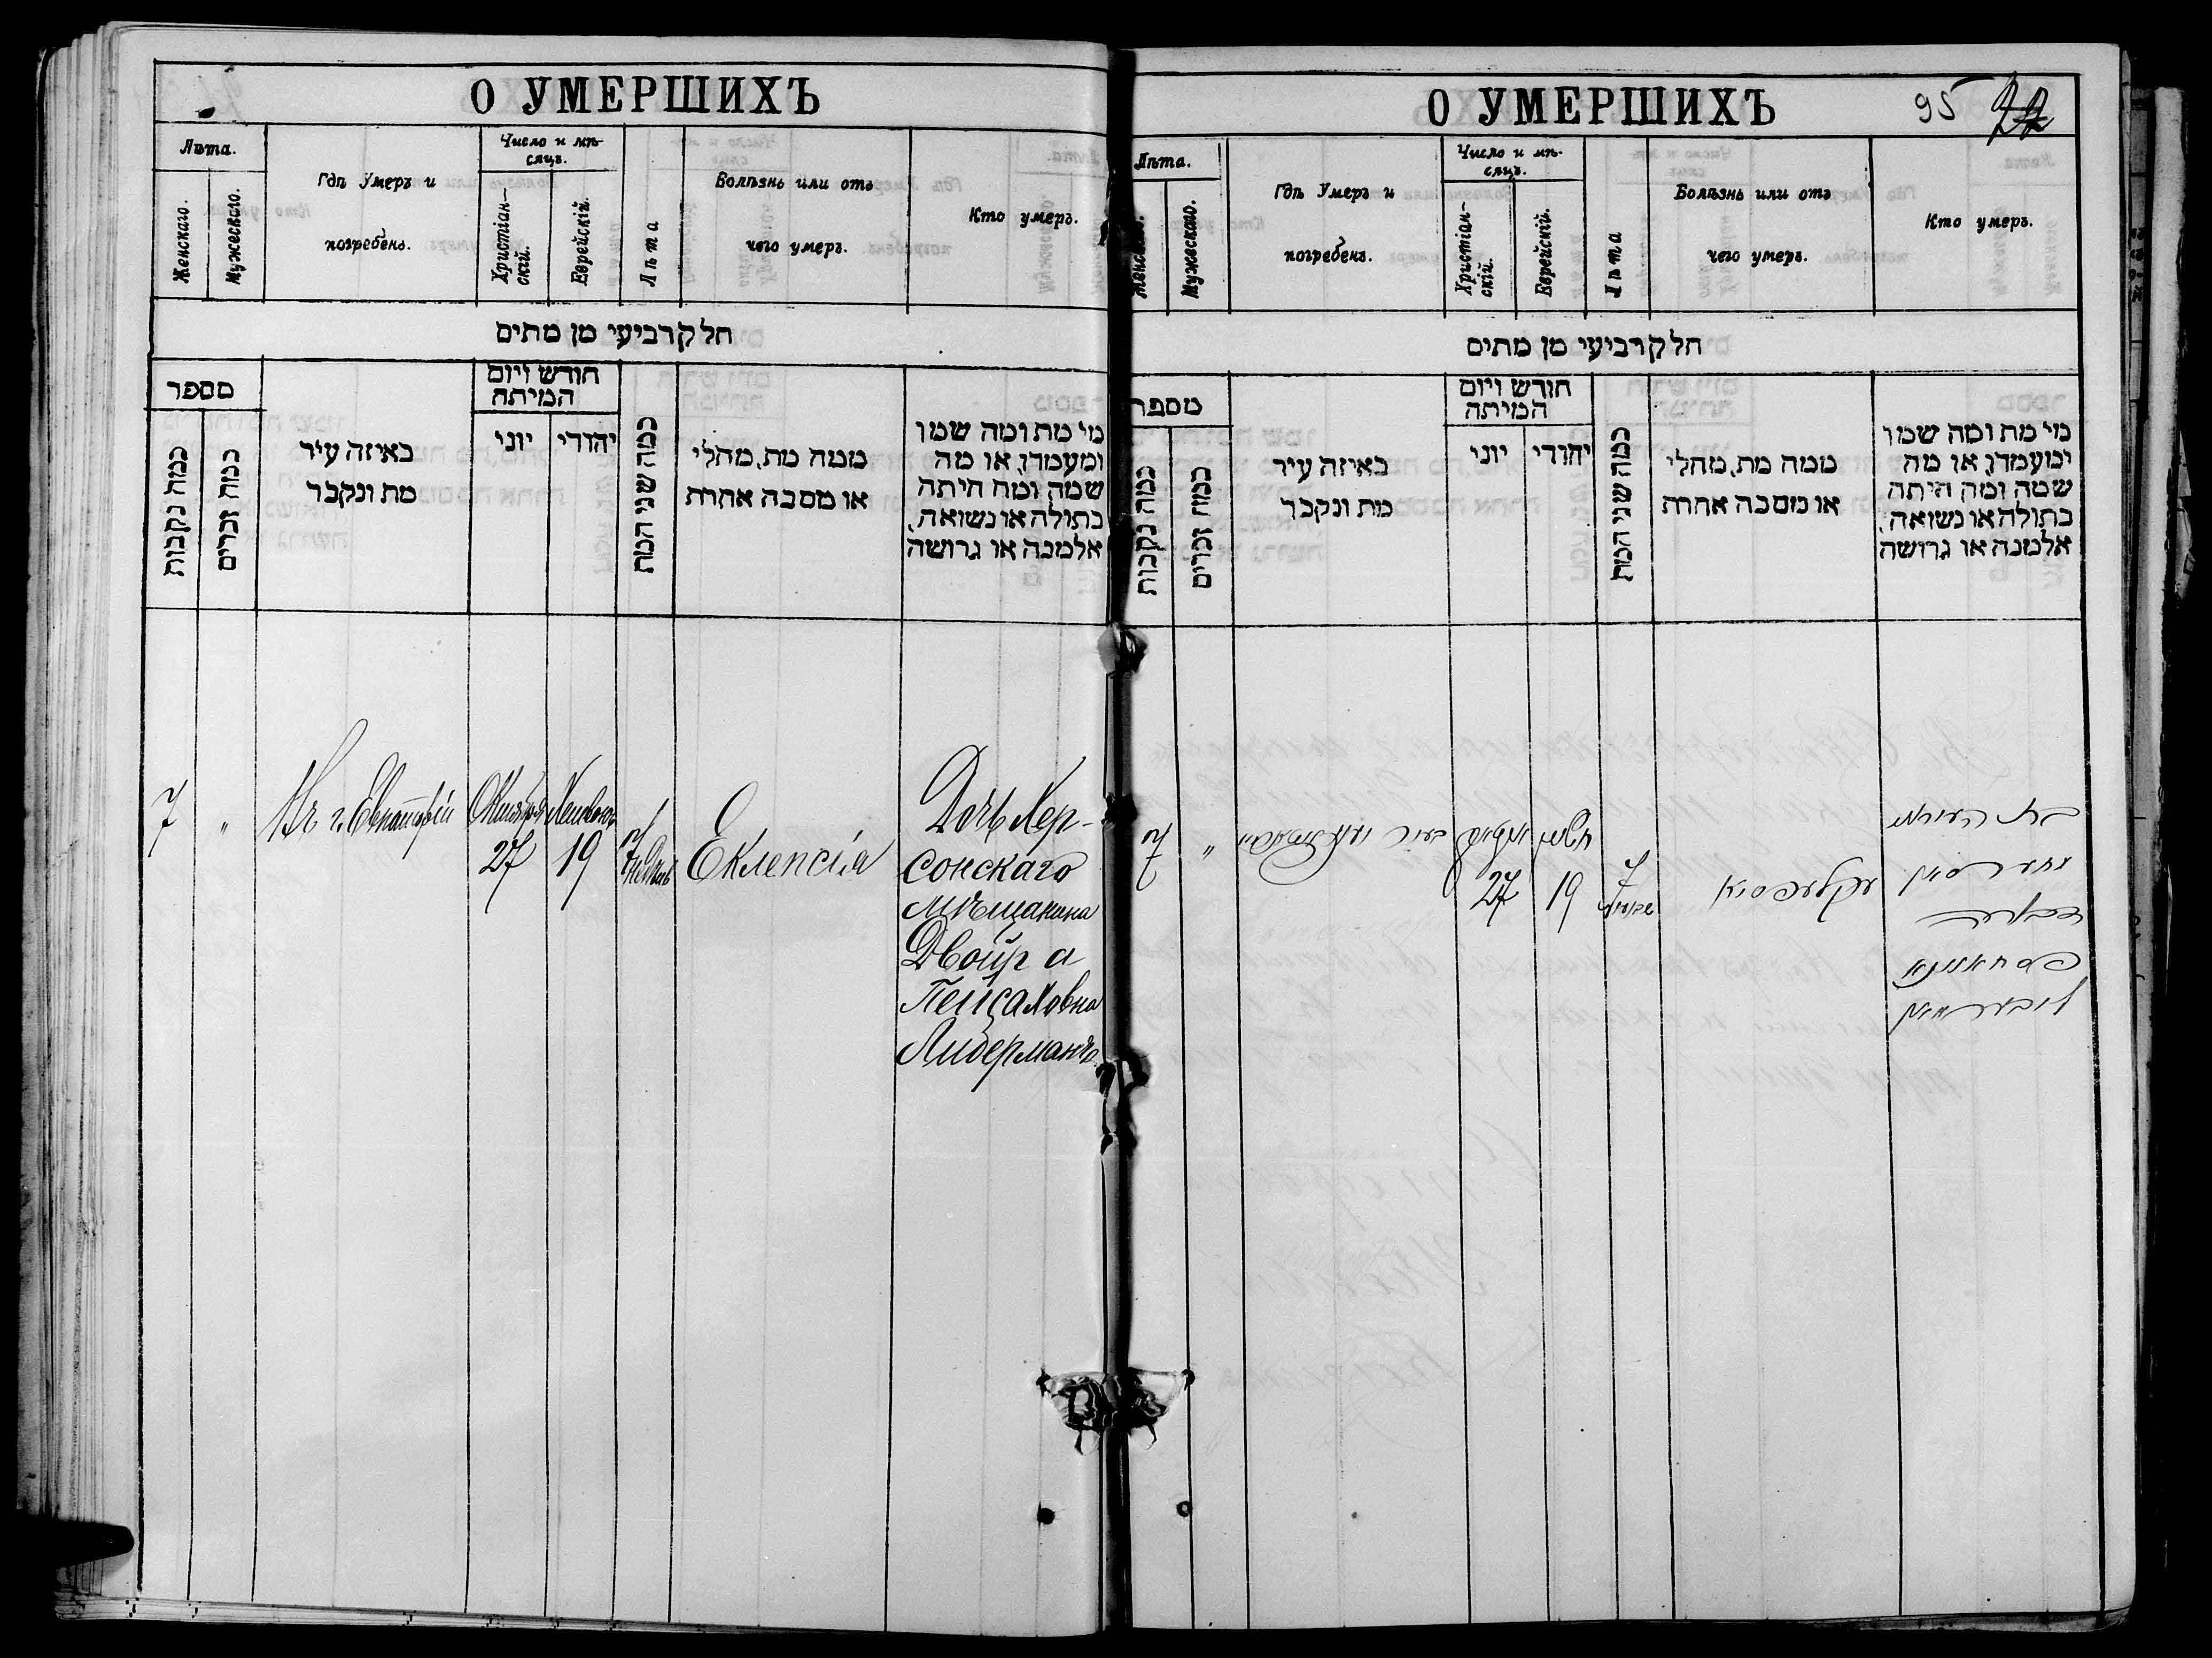 О УМЕРШИХЪ
Лѣта.
Женскаго.
Мужескаго.
Гдѣ Умеръ и
погребенъ.
Число и мѣ-
сяцъ.
Христіан-
скій.
Еврейскій.
Лѣта
Болѣзнь или отъ
чего умеръ.
Кто умеръ.
חלק רביעי מן מתים
מספר
כמה נקבות
כמה זכרים
באיזה עיר
מת ונקבר
חודש ויום
המיתה
יוני
יהודי
כמה שני המת
ממה מת, מחלי
או מסבה אחרת
מי מת ומה שמו
ומעמדו, או מה
שמה ומה היתה
בתולה או נשואה,
אלמנה או גרושה
7
"
Въ г. Евпаторіи
Октября
27
19
Еклепсія
Дочь Хер-
сонскаго
мѣщанина
Двойра
Пейсаховна
Лидерманъ
О УМЕРШИХЪ
95
Лѣта.
Женскаго.
Мужескаго.
Гдѣ Умеръ и
погребенъ.
Число и мѣ-
сяцъ.
Христіан-
скій.
Еврейскій.
Лѣта
Болѣзнь или отъ
чего умеръ.
Кто умеръ.
חלק רביעי מן מתים
מספר
כמה נקבות
כמה זכרים
באיזה עיר
מת ונקבר
חודש ויום
המיתה
יוני
יהודי
כמה שני המת
ממה מת, מחלי
או מסבה אחרת
מי מת ומה שמו
ומעמדו, או מה
שמה ומה היתה
בתולה או נשואה,
אלמנה או גרושה
7
"
בעיר
27
חשון
19
עקלעפסיא
בת